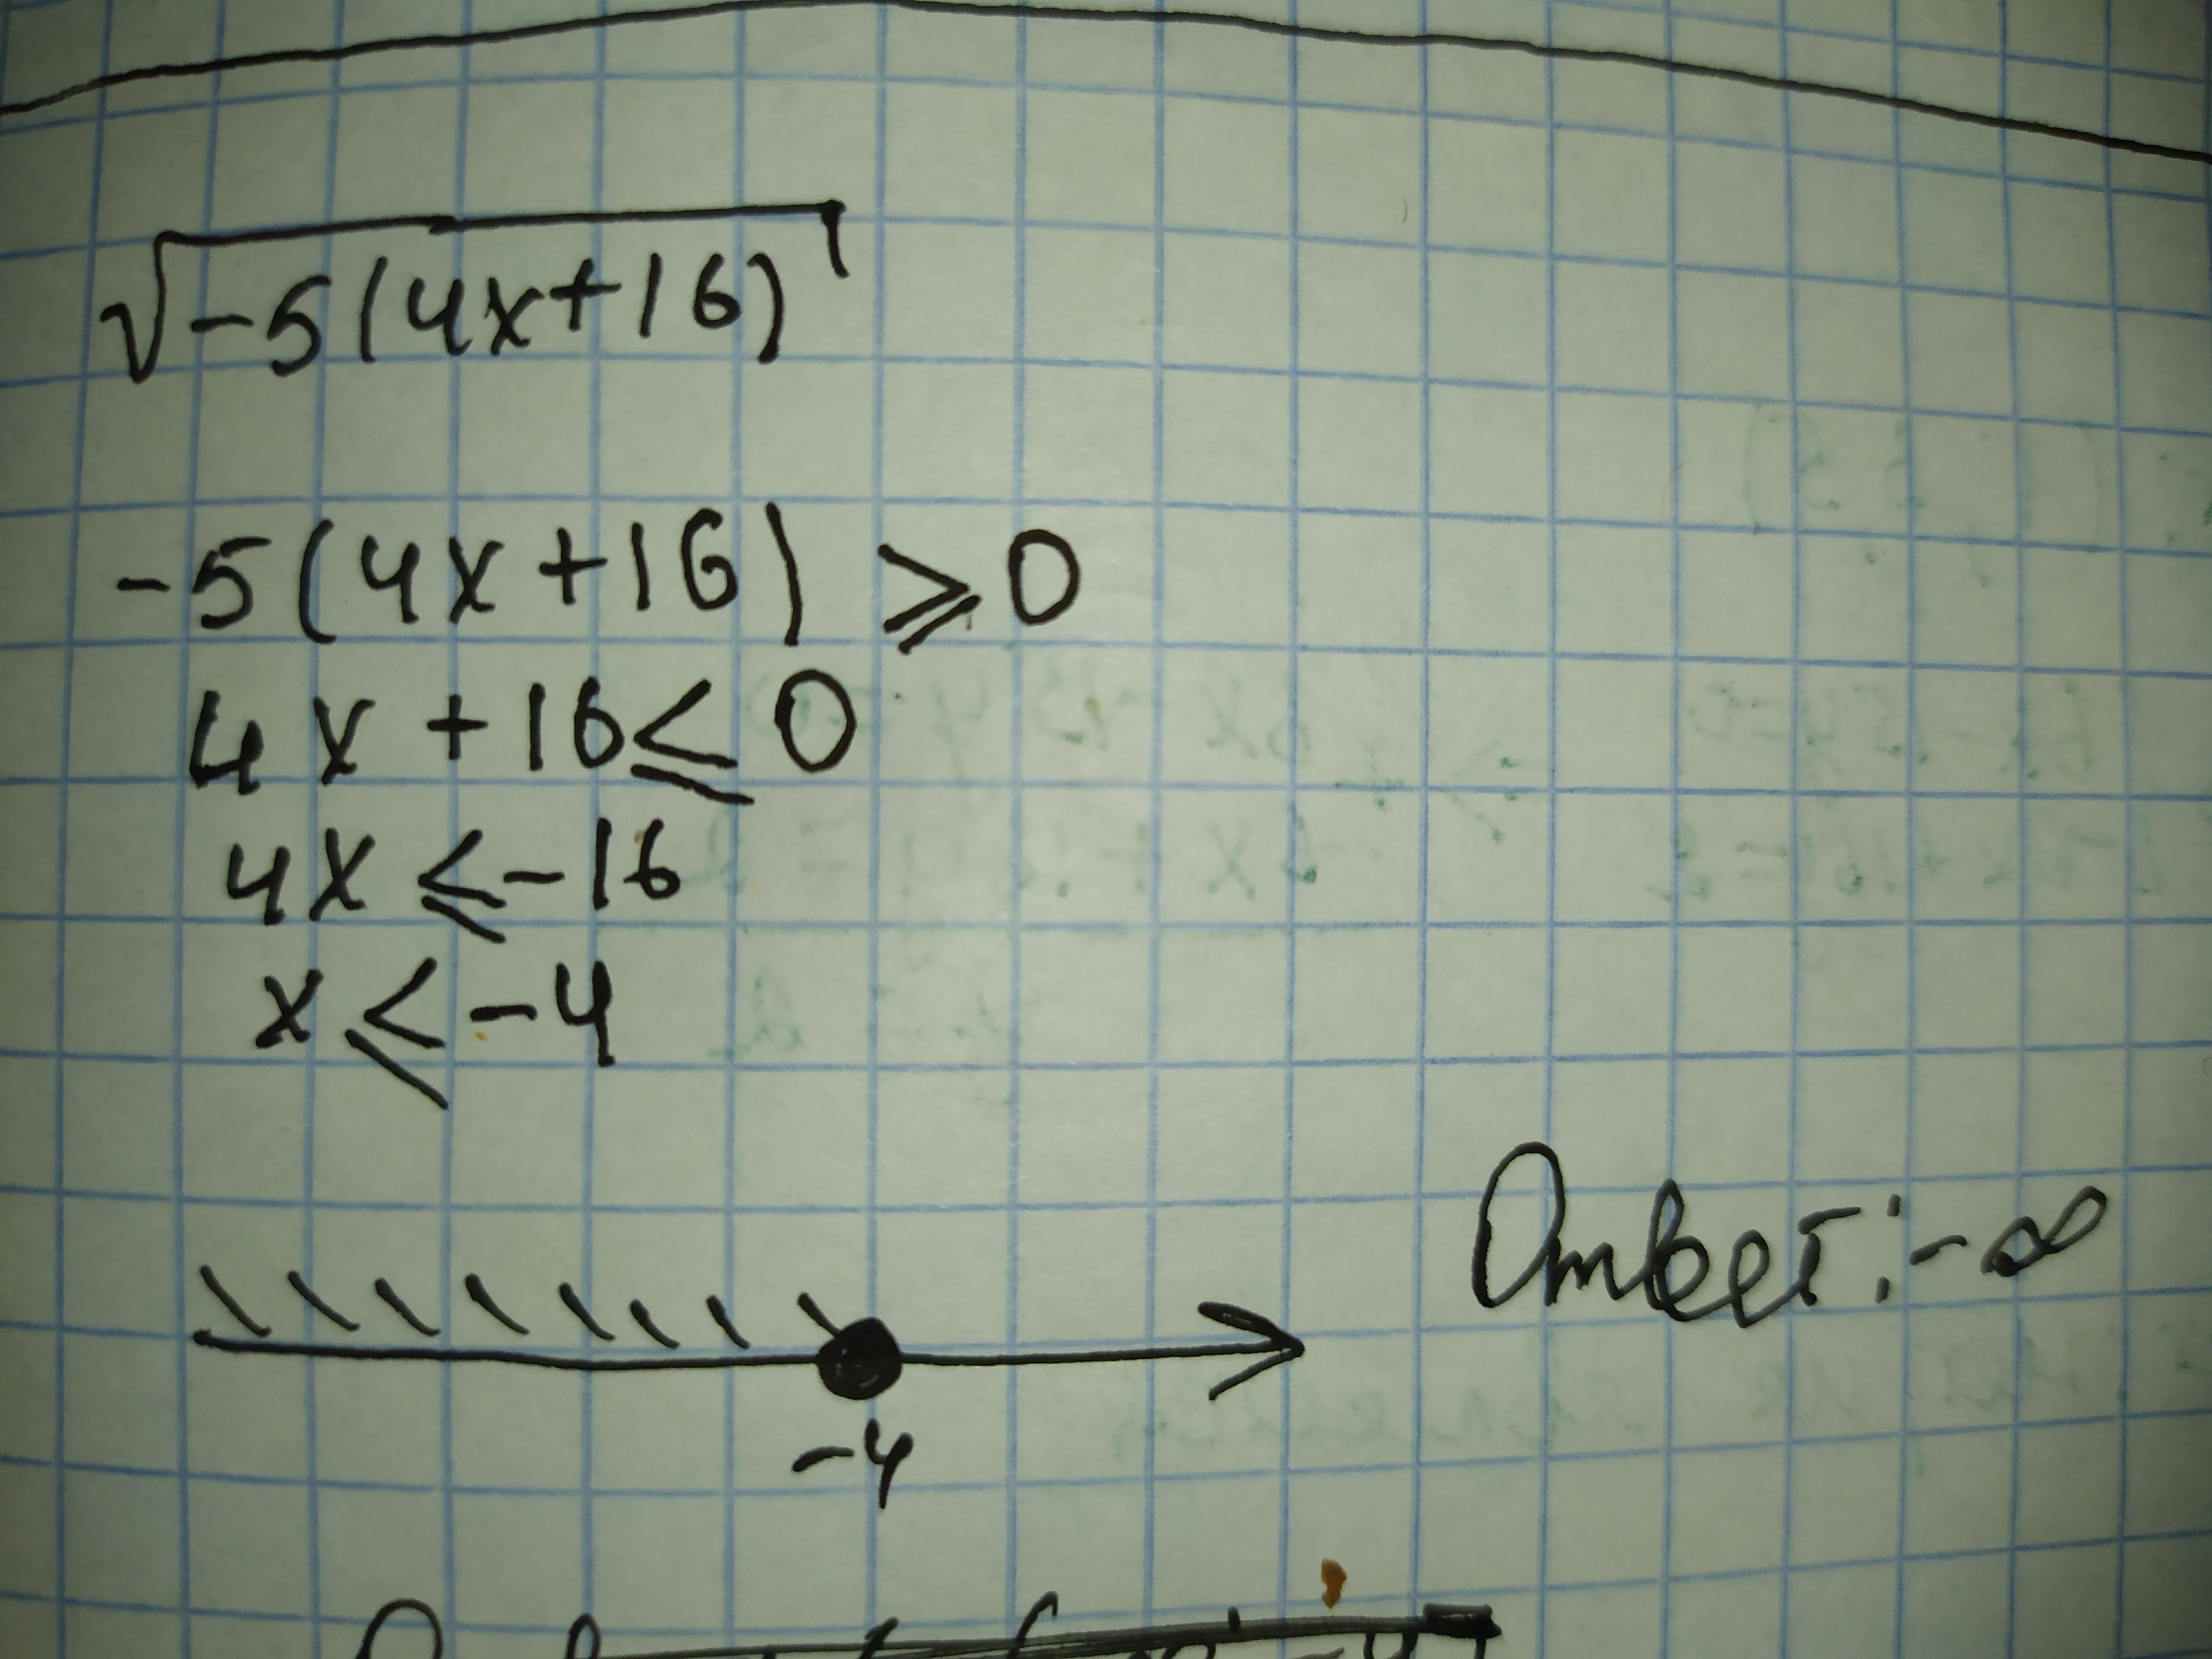 √-5(4x+16)
-5(4x+16) ⩾ 0
4x + 16 ⩽ 0
4x ⩽ -16
x ⩽ -4
Ответ: -∞
-4